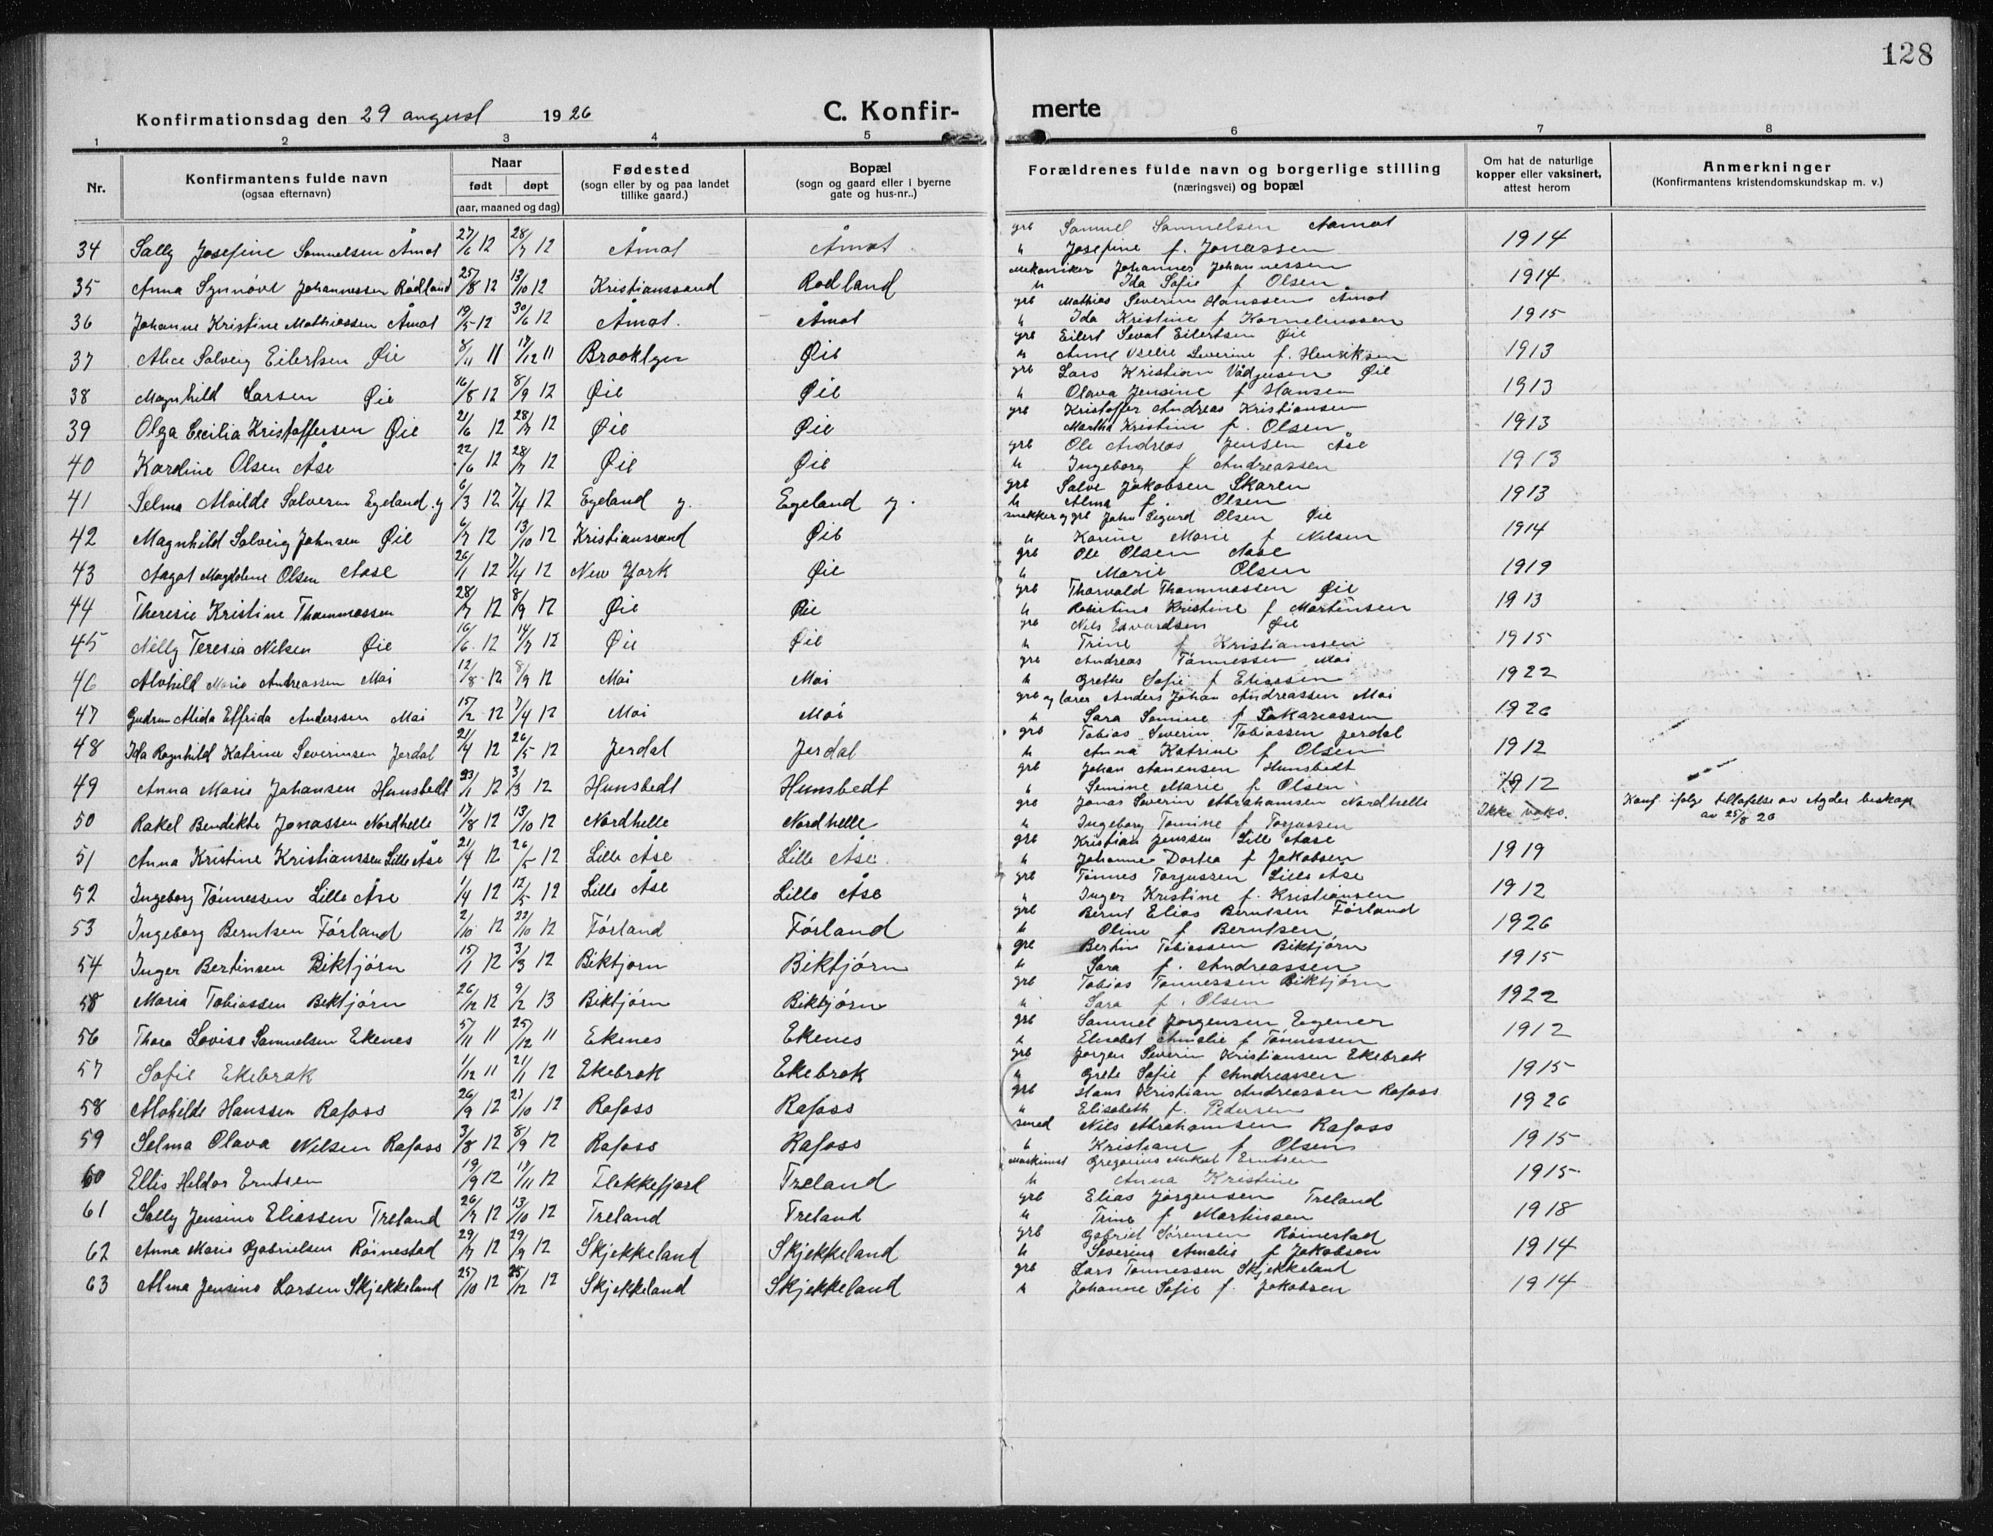 128
Konfirmationsdag den 29 august 1926 C. Konfir- merte
1 2 3 4 5 6 7 8
Nr. Konfirmantens fulde navn (ogsaa efternavn) Naar født døpt (aar, maaned og dag) Fødested (sogn eller by og paa landet tillike gaard.) Bopæl (sogn og gaard eller i byerne gate og hus-nr..) Forældrenes fulde navn og borgerlige stilling (næringsvei) og bopæl Om hat de naturlige kopper eller vaksinert, attest herom Anmerkninger (Konfirmantens kristendomskundskap m. v.)
34 Sally Josefine Samuelsen Åmot 27/6 12 28/7 12 Åmot Åmot grb Samuel Samuelsen Aamot
" Josefine f. Jonassen 1914
35 Anna Synnøve Johannessen Rødland 25/8 12 13/10 12 Kristianssand Rødland Mekaniker Johannes Johannessen
" Ida Sofie f Olsen 1914
36 Johanne Kristine Mathiassen Åmot 19/5 12 30/6 12 Åmot. Åmot grb Mathias Severin Hanssen Åmot
" Ida Kristine f Korneliussen 1915
37 Alice Solveig Eilertsen Øie 8/11 11 17/12 11 Brooklyn Øie grb Eilert Seval Eilertsen Øie
" Anne Severine f. Henriksen 1913
38 Magnhild Larsen Øie 16/8 12 8/9 12 Øie Øie grb Lars Kristian Øie
" Olava Jensine f Hansen 1913
39 Olga Cecilia Kristoffersen Øie 21/6 12 28/7 12 Øie Øie grb Kristoffer Andreas Kristiansen
Martha Kristine f. Olsen 1913
40 Kardine Olsen Åse 22/6 12 28/7 12 Øie Øie grb Ole Andreas Jensen Åse
" Ingeborg f Andreassen 1913
41 Selma Salvesen Egeland. y 6/3 12 7/4 12 Egeland y. Egeland y. grb Salve Jakobsen Skaren
" Alma f. Olsen 1913
42 Magnhild Solveig Johnsen Øie 6/7 12 13/10 12 Kristianssand Øie snekker og grb John Sigurd Olsen Øie
" Karine Marie f Nilsen 1914
43 Aagot Magdalene Olsen Aase 26/1 12 7/4 12 New York Øie grb Ole Olsen Aase
" Marie Olsen 1919
44 Theresie Kristine Thommassen 28/7 12 8/9 12 Øie Øie grb Thorvald Thommassen Øie
" Kristine f Martinsen 1913
45 Nelly Teresia Nilsen Øie 16/6 12 14/7 12 Øie Øie grb Nils Edvardsen Øie
" Trine f Kristianssen 1915
46 Alvhild Marie Andreassen Moi 12/8 12 8/9 12 Moi Moi grb Andreas Tønnessen Moi
" Grethe Sofie f Eliassen 1922
47 Gudrun Alida Elfrida Anderssen Moi 15/2 12 7/4 12 Moi Moi grb og lærer Anders Johan Andreassen Moi
" Sara Semine f Sakariassen 1926
48 Ida Ragnhild Katrine Severinsen Jerdal 21/4 12 26/5 12 Jerdal Jerdal grb Tobias Severin Tobiassen Jerdal
" Anna Katrine f Olsen 1912
49 Anna Marie Johansen Hunsbedt 23/1 12 3/3 12 Hunsbedt Hunsbedt grb Johan Aanensen Hunsbedt
" Semine Marie f Olsen 1912
50 Rakel Bendikte Jonassen Nordhelle 17/8 12 13/10 12 Nordhelle Nordhelle grb Jonas Severin Abrahamsen Nordhelle
" Ingeborg Tomine f Torjussen Ikke vaks. Konf. ifølge tillatelse av Agder biskop av 25/8 26
51 Anna Kristine Kristianssen Lille Åse 21/4 12 26/5 12 Lille Åse Lille Åse. grb Kristian Jenssen Lille Aase
" Johanne Dortea f Jakobsen 1919
52 Ingeborg Tønnessen Lille Åse 1/4 12 12/5 12 Lille Åse Lille Åse grb Tønnes Torjussen Lille Åse
" Inger Kristine f. Kristiansen 1912
53 Ingeborg Berntsen Førland 2/10 12 22/10 12 Førland Førland grb Bernt Elias Berntsen Førland
" Oline f Berntsen 1926
54 Inger Bertinsen Biktjørn 15/1 12 3/3 12 Biktjørn Biktjørn grb Bertin Tobiassen Biktjørn
" Sara f. Andreassen 1915
55 Maria Tobiassen Biktjørn 26/12 12 9/2 13 Biktjørn Biktjørn grb Tobias Tønnessen Biktjørn
" Sara f. Olsen 1922
56 Thora Lovise Samuelsen Ekenes 5/11 11 25/12 11 Ekenes Ekenes grb Samuel Jørgensen Egenes
" Elisabet Amalie f Tønnessen 1912
57 Sofie Ekebrok 1/12 11 21/1 12 Ekebrok Ekebrok grb Jørgen Severin Kristiansen Ekebrok
" Grete Sofie f Andreassen 1915
58 Alvhilde Hanssen Rafoss 26/9 12 27/10 12 Rafoss Rafoss grb Hans Kristian Andreassen Rafoss
" Elisabeth f. Pedersen 1926
59 Selma Olava Nilsen Rafoss 3/8 12 8/9 12 Rafoss Rafoss smed Nils Abrahamsen Rafoss
" Kristiane f Olsen 1915
60 Ellis Hildor Erntsen 19/9 12 17/11 12 Flekkefjord Treland Maskinist Gregorius Mikal Erntsen
" Anna Kristine 1915
61 Sally Jensine Eliassen Treland 26/7 12 13/10 12 Treland Treland grb Elias Jørgensen Treland
" Trine f Martinsen 1918
62 Anna Marie Gabrielsen Røinestad 29/7 12 29/9 12 Skjekkeland Skjekkeland grb Gabriel Sørensen Røinestad
" Severine Amalie f Jakobsen 1914
63 Alma Jensine Larsen Skjekkeland 25/10 12 25/12 12 Skjekkeland Skjekkeland grb Lars Tønnessen Skjekkeland
" Johanne Sofie f. Jakobsen 1914